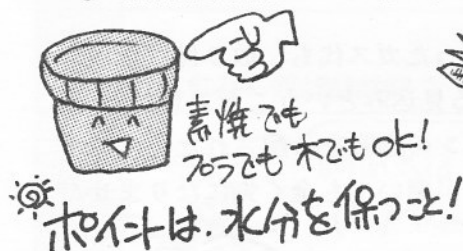 素焼でも
プラでも木でもOK!
ポイントは、水分を保つこと!